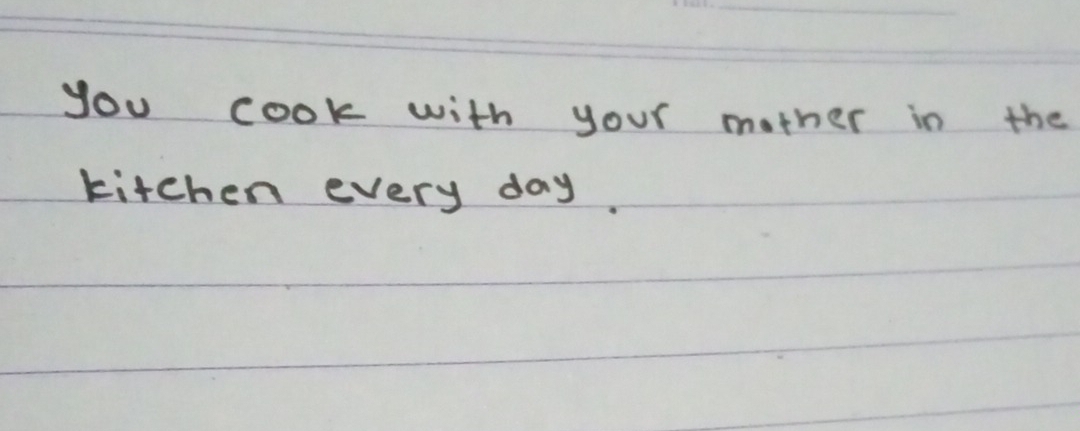 you cook with your mother in the
kitchen every day.